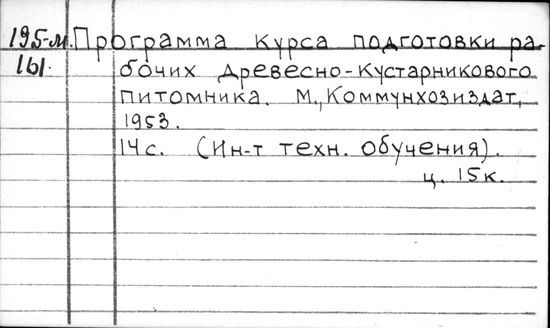 195-м Программа курса подготовки ра-
161. бочих древесно-кустарникового
питомника. М., Коммунхозиздат,
1953.
14 с. (Ин-т техн. обучения).
ц. 15к.